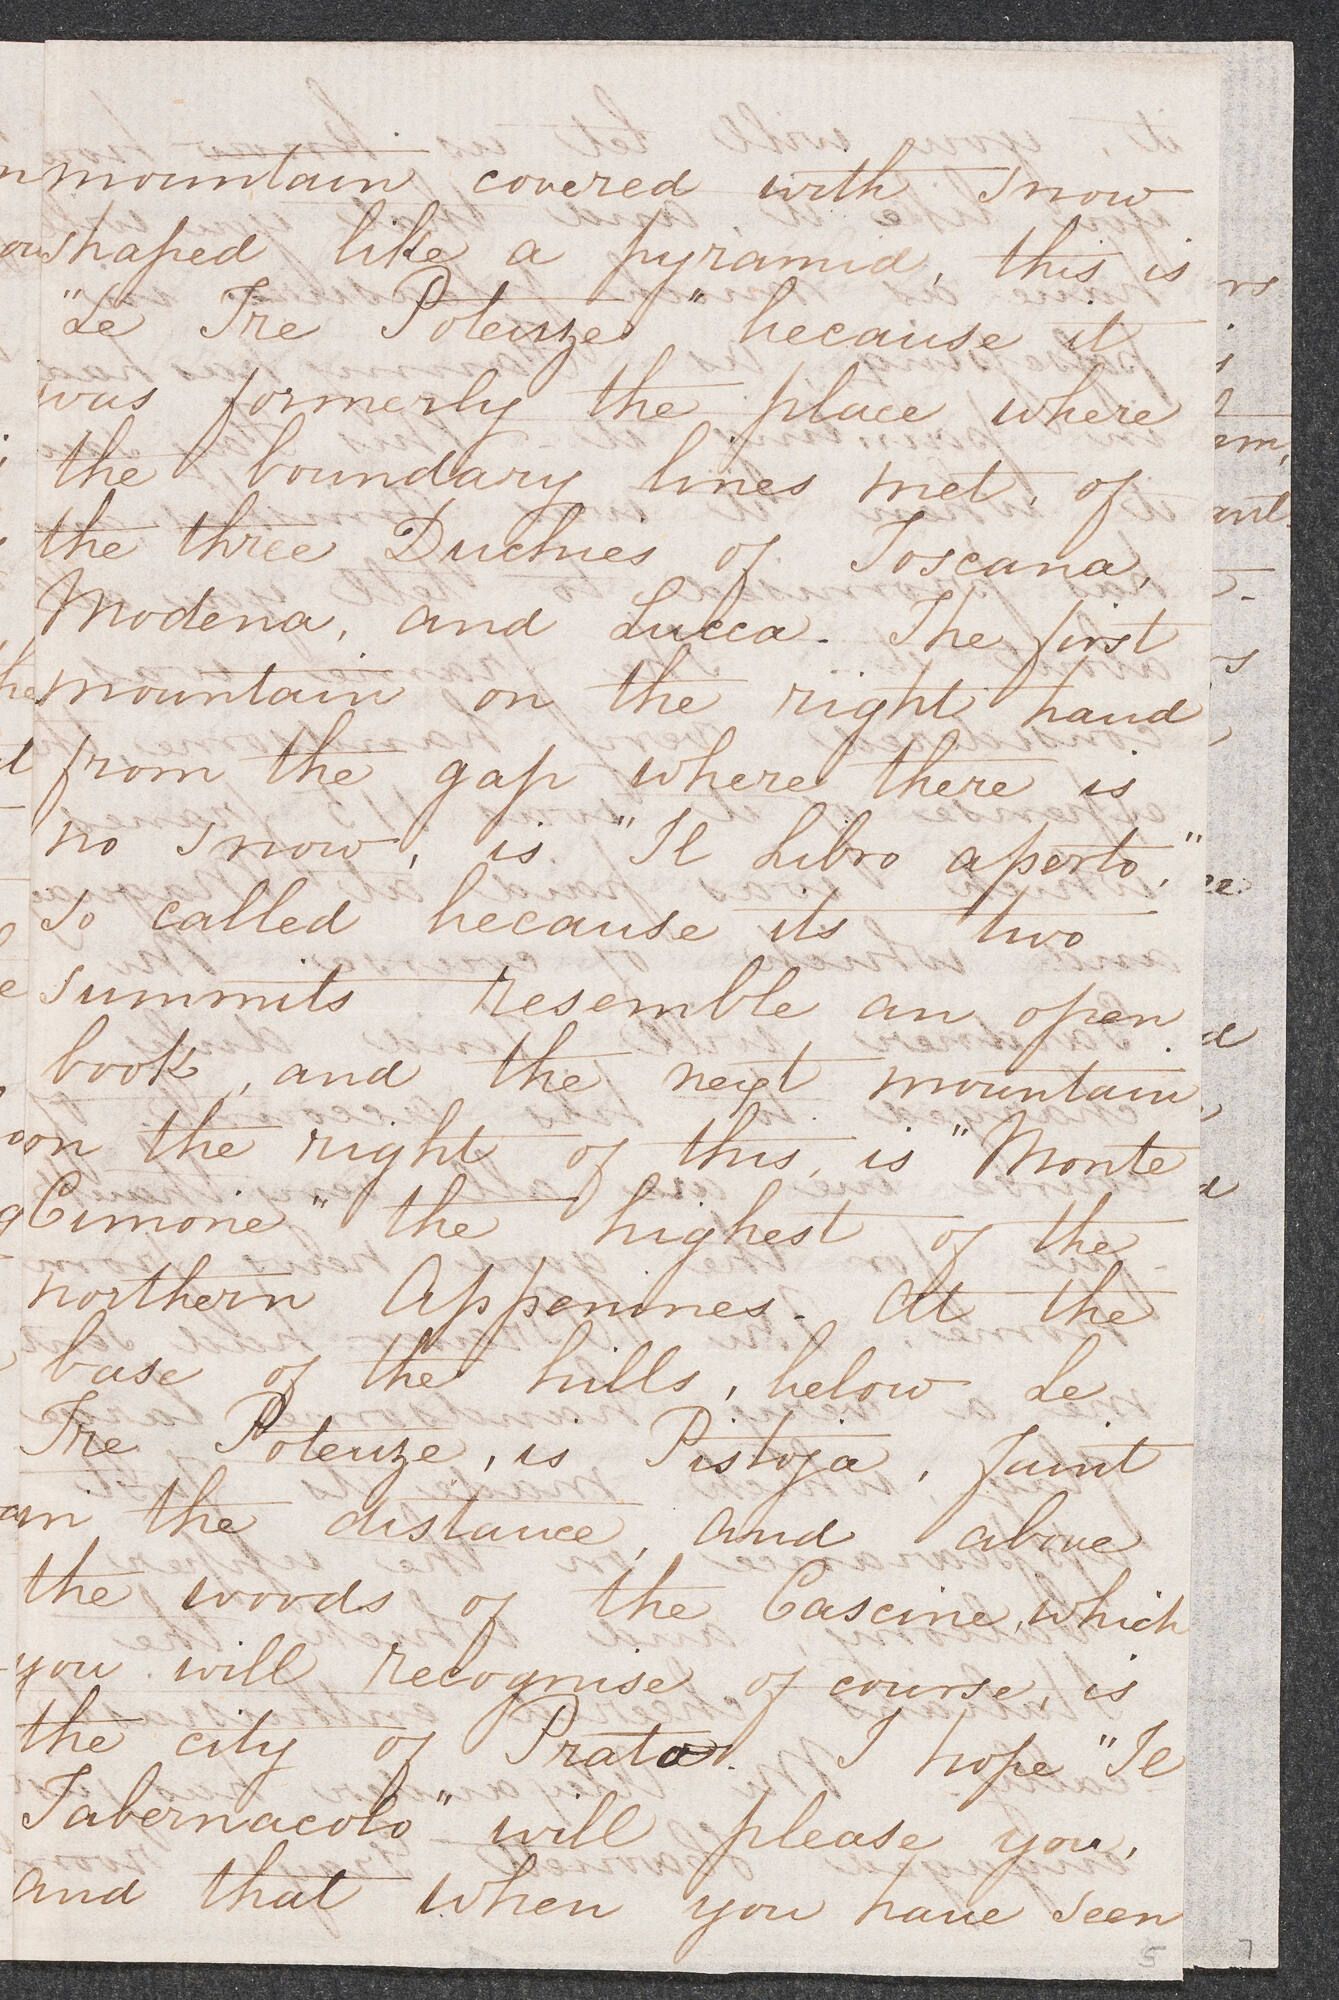 mountain covered with snow
shaped like a pyramid, this is
"Le Tre Potenze" because it
was formerly the place where
the boundary lines met, of
the three Duchies of Toscana,
Modena, and Lucca. The first
mountain on the right hand
from the gap where there is
no snow, is "Il Libro aperto,"
so called because its two
summits resemble an open
book, and the next mountain
on the right of this, is "Monte
Cimone" the highest of the
northern Appenines. At the
base of the hills, below Le
Tre Potenze, is Pistoja, faint
in the distance, and above
the woods of the Cascine, which
you will recognise of course, is
the city of Prato. I hope "Il
Tabernacolo" will please you,
and that when you have seen
5
7